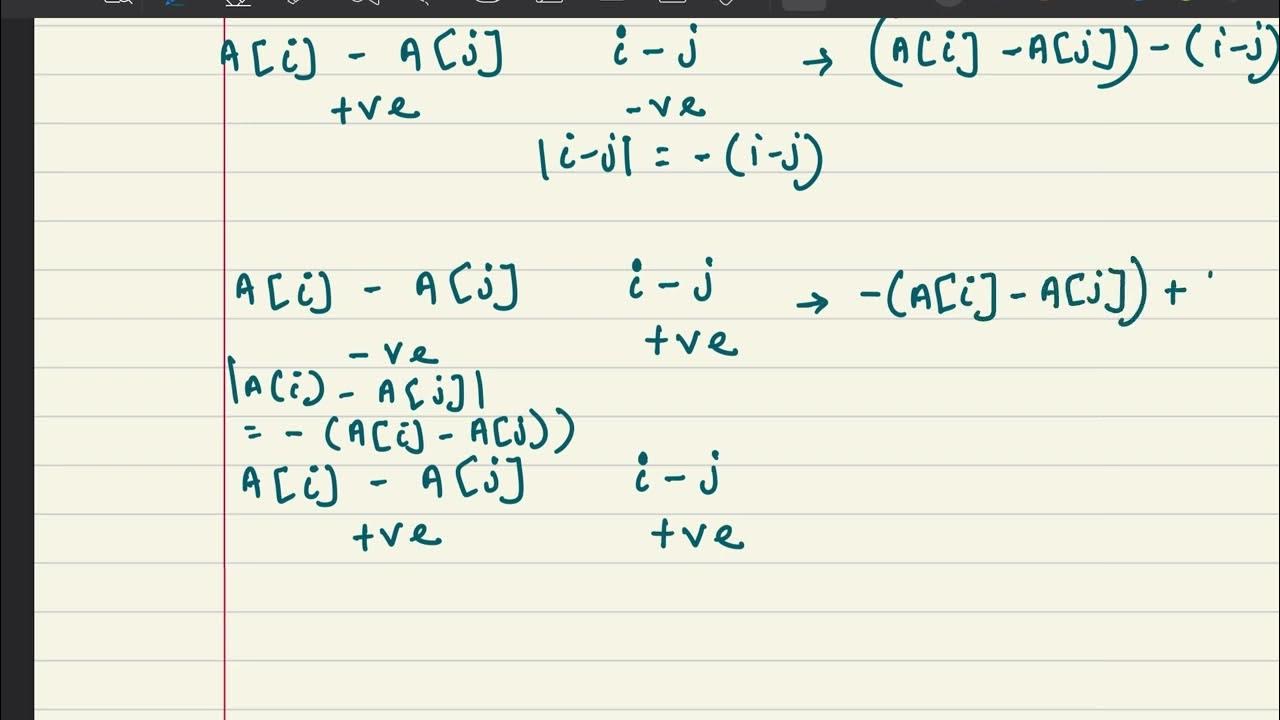 A[i] - A[j] i-j → (A[i] -A[j]) - (i-j)
+ve -ve
|i-j| = -(i-j)
A[i] - A[j] i-j → -(A[i] - A[j]) +
-ve +ve
|A(i) - A[j]|
= - (A[i] - A[j))
A[i] - A[j] i-j
+ve +ve